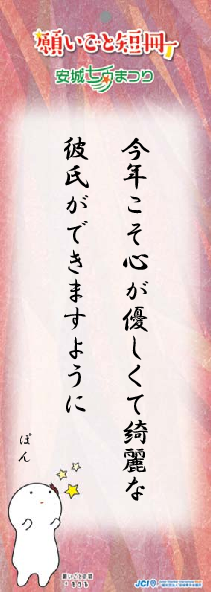 願いごと短冊
安城七夕まつり
今年こそ心が優しくて綺麗な
彼氏ができますように
ぽん
願いごと短冊
JCI